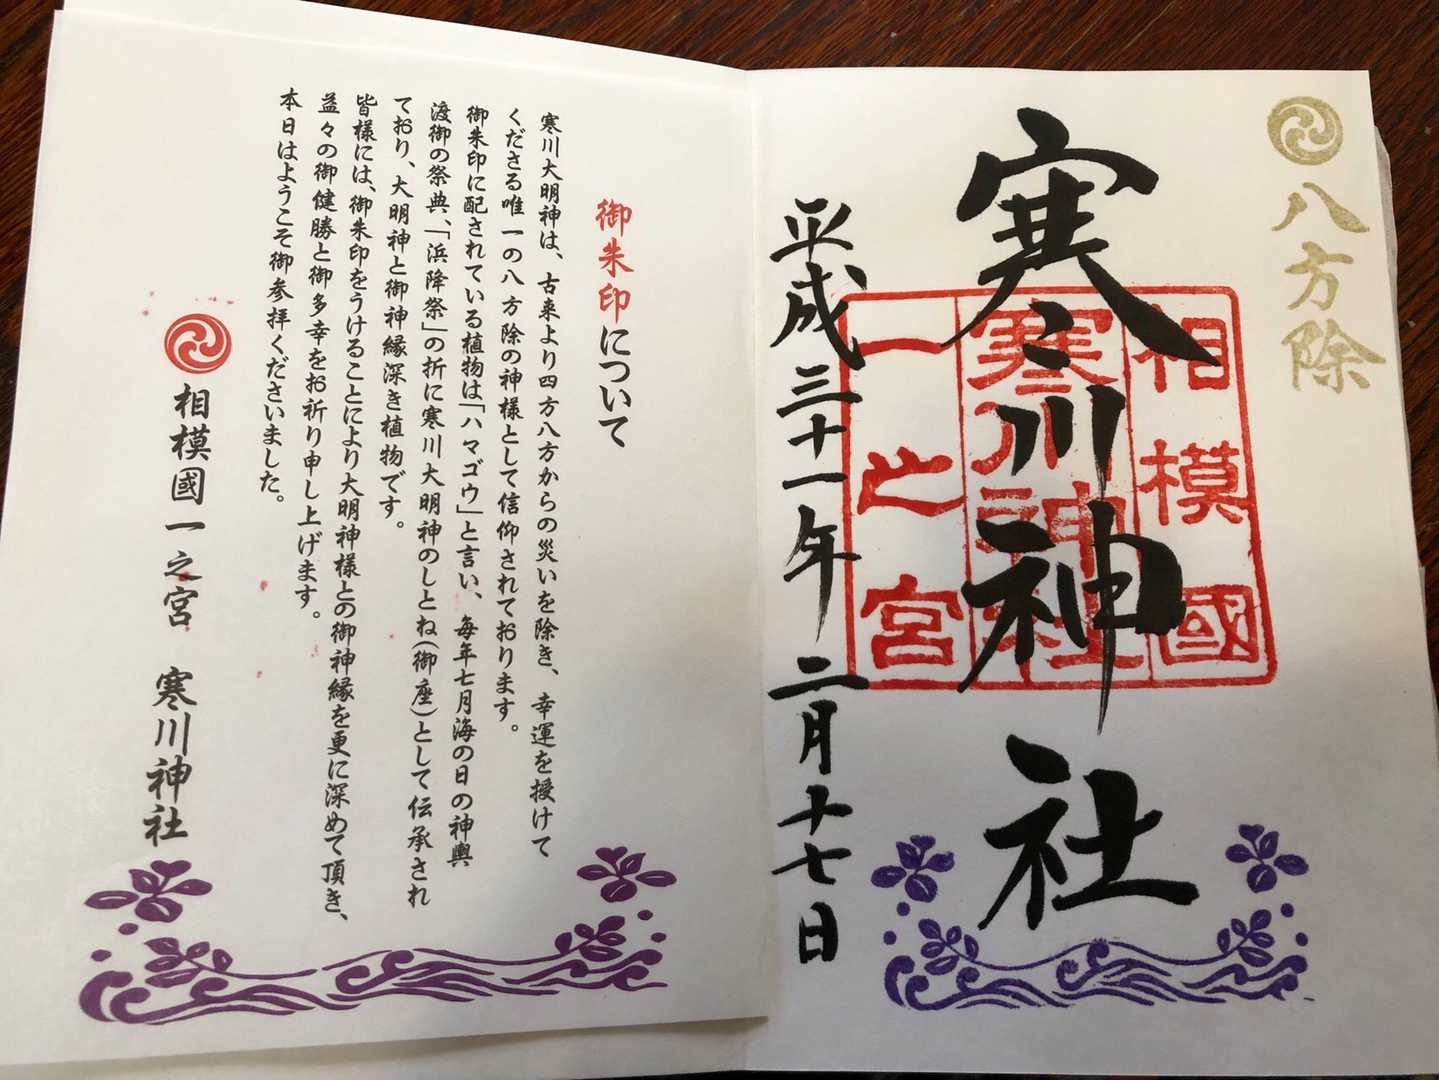 八方除
寒川神社
相模國
寒川神社
一之宮
平成三十一年二月十七日
御朱印について
寒川大明神は、古来より四方八方からの災いを除き、幸運を授けて
くださる唯一の八方除の神様として信仰されております。
御朱印に配されている植物は「ハマゴウ」と言い、毎年七月海の日の神輿
渡御の祭典、「浜降祭」の折に寒川大明神のしとね(御座)として伝承され
ており、大明神と御神縁深き植物です。
皆様には、御朱印をうけることにより大明神様との御神縁を更に深めて頂き、
益々の御健勝と御多幸をお祈り申し上げます。
本日はようこそ御参拝くださいました。
相模國一之宮 寒川神社